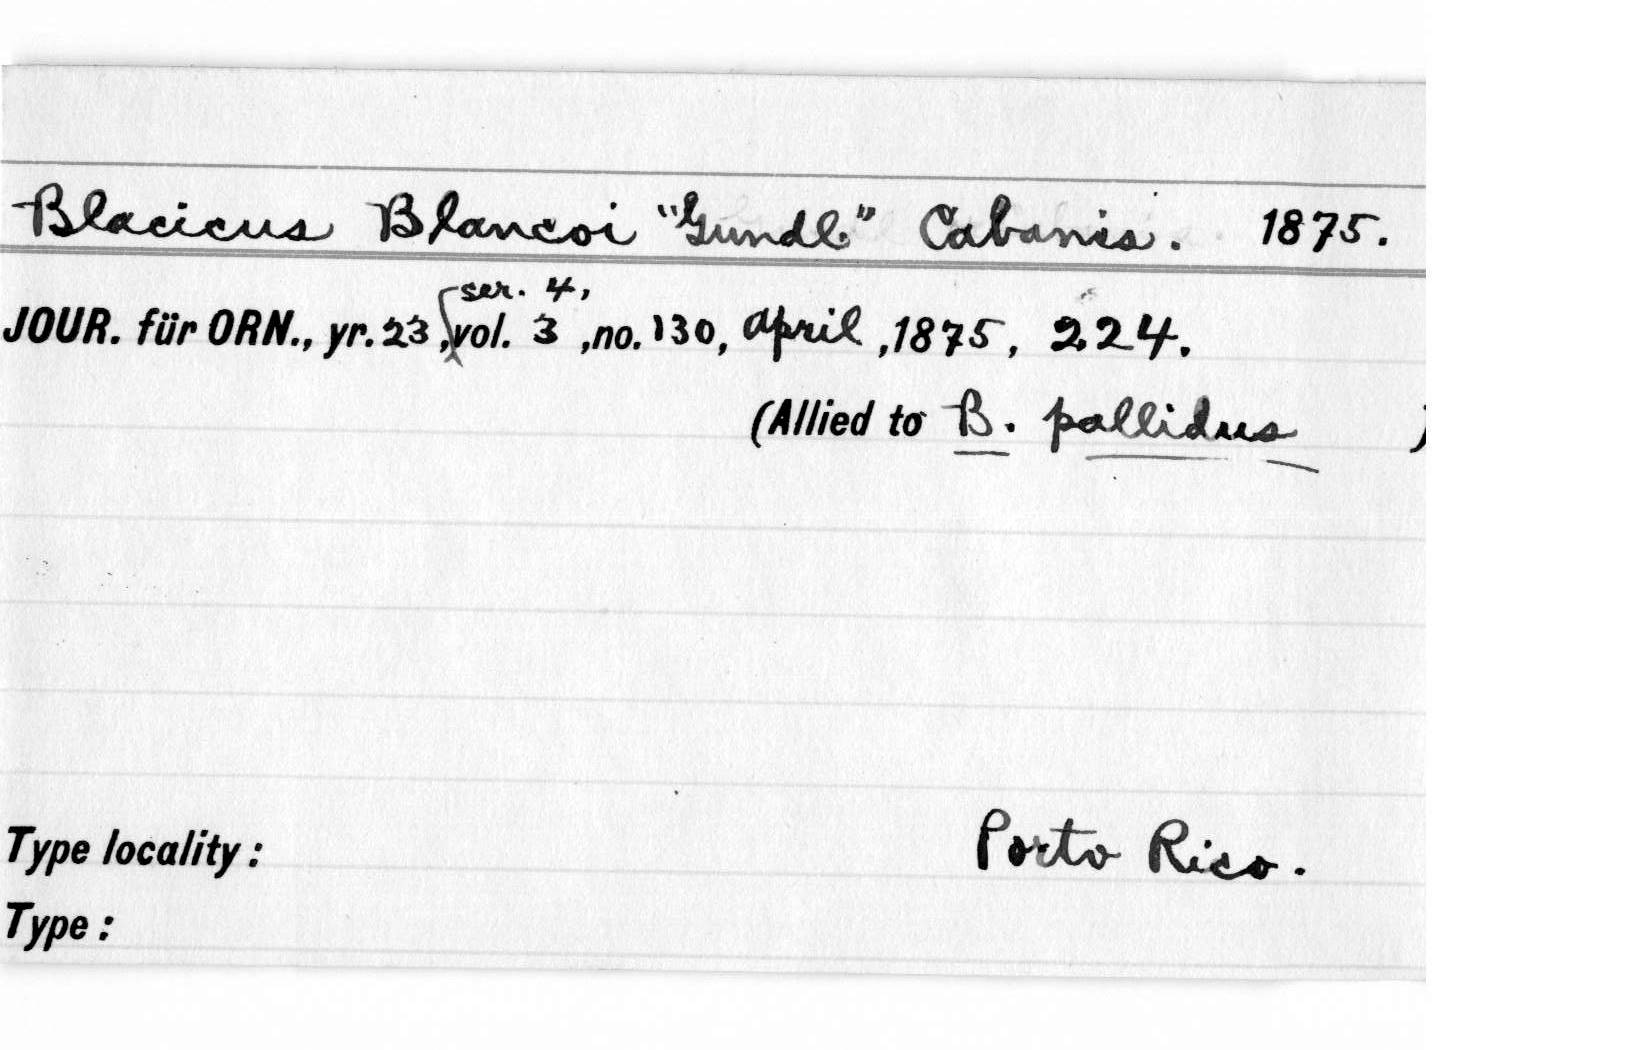 Blacicus Blancoi "Gundl." Cabanis. 1875.
ser. 4,
JOUR. für ORN., yr. 23, vol. 3, no. 130, April, 1875, 224.
(Allied to B. pallidus )
Type locality: Porto Rico.
Type: